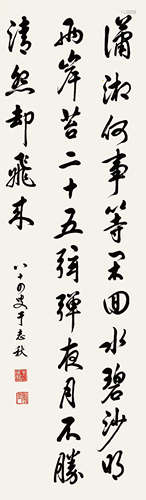 瀟湘何事等閑回水碧沙明
兩岸苔二十五弦彈夜月不勝
清怨却飛来
八十四叟于志秋